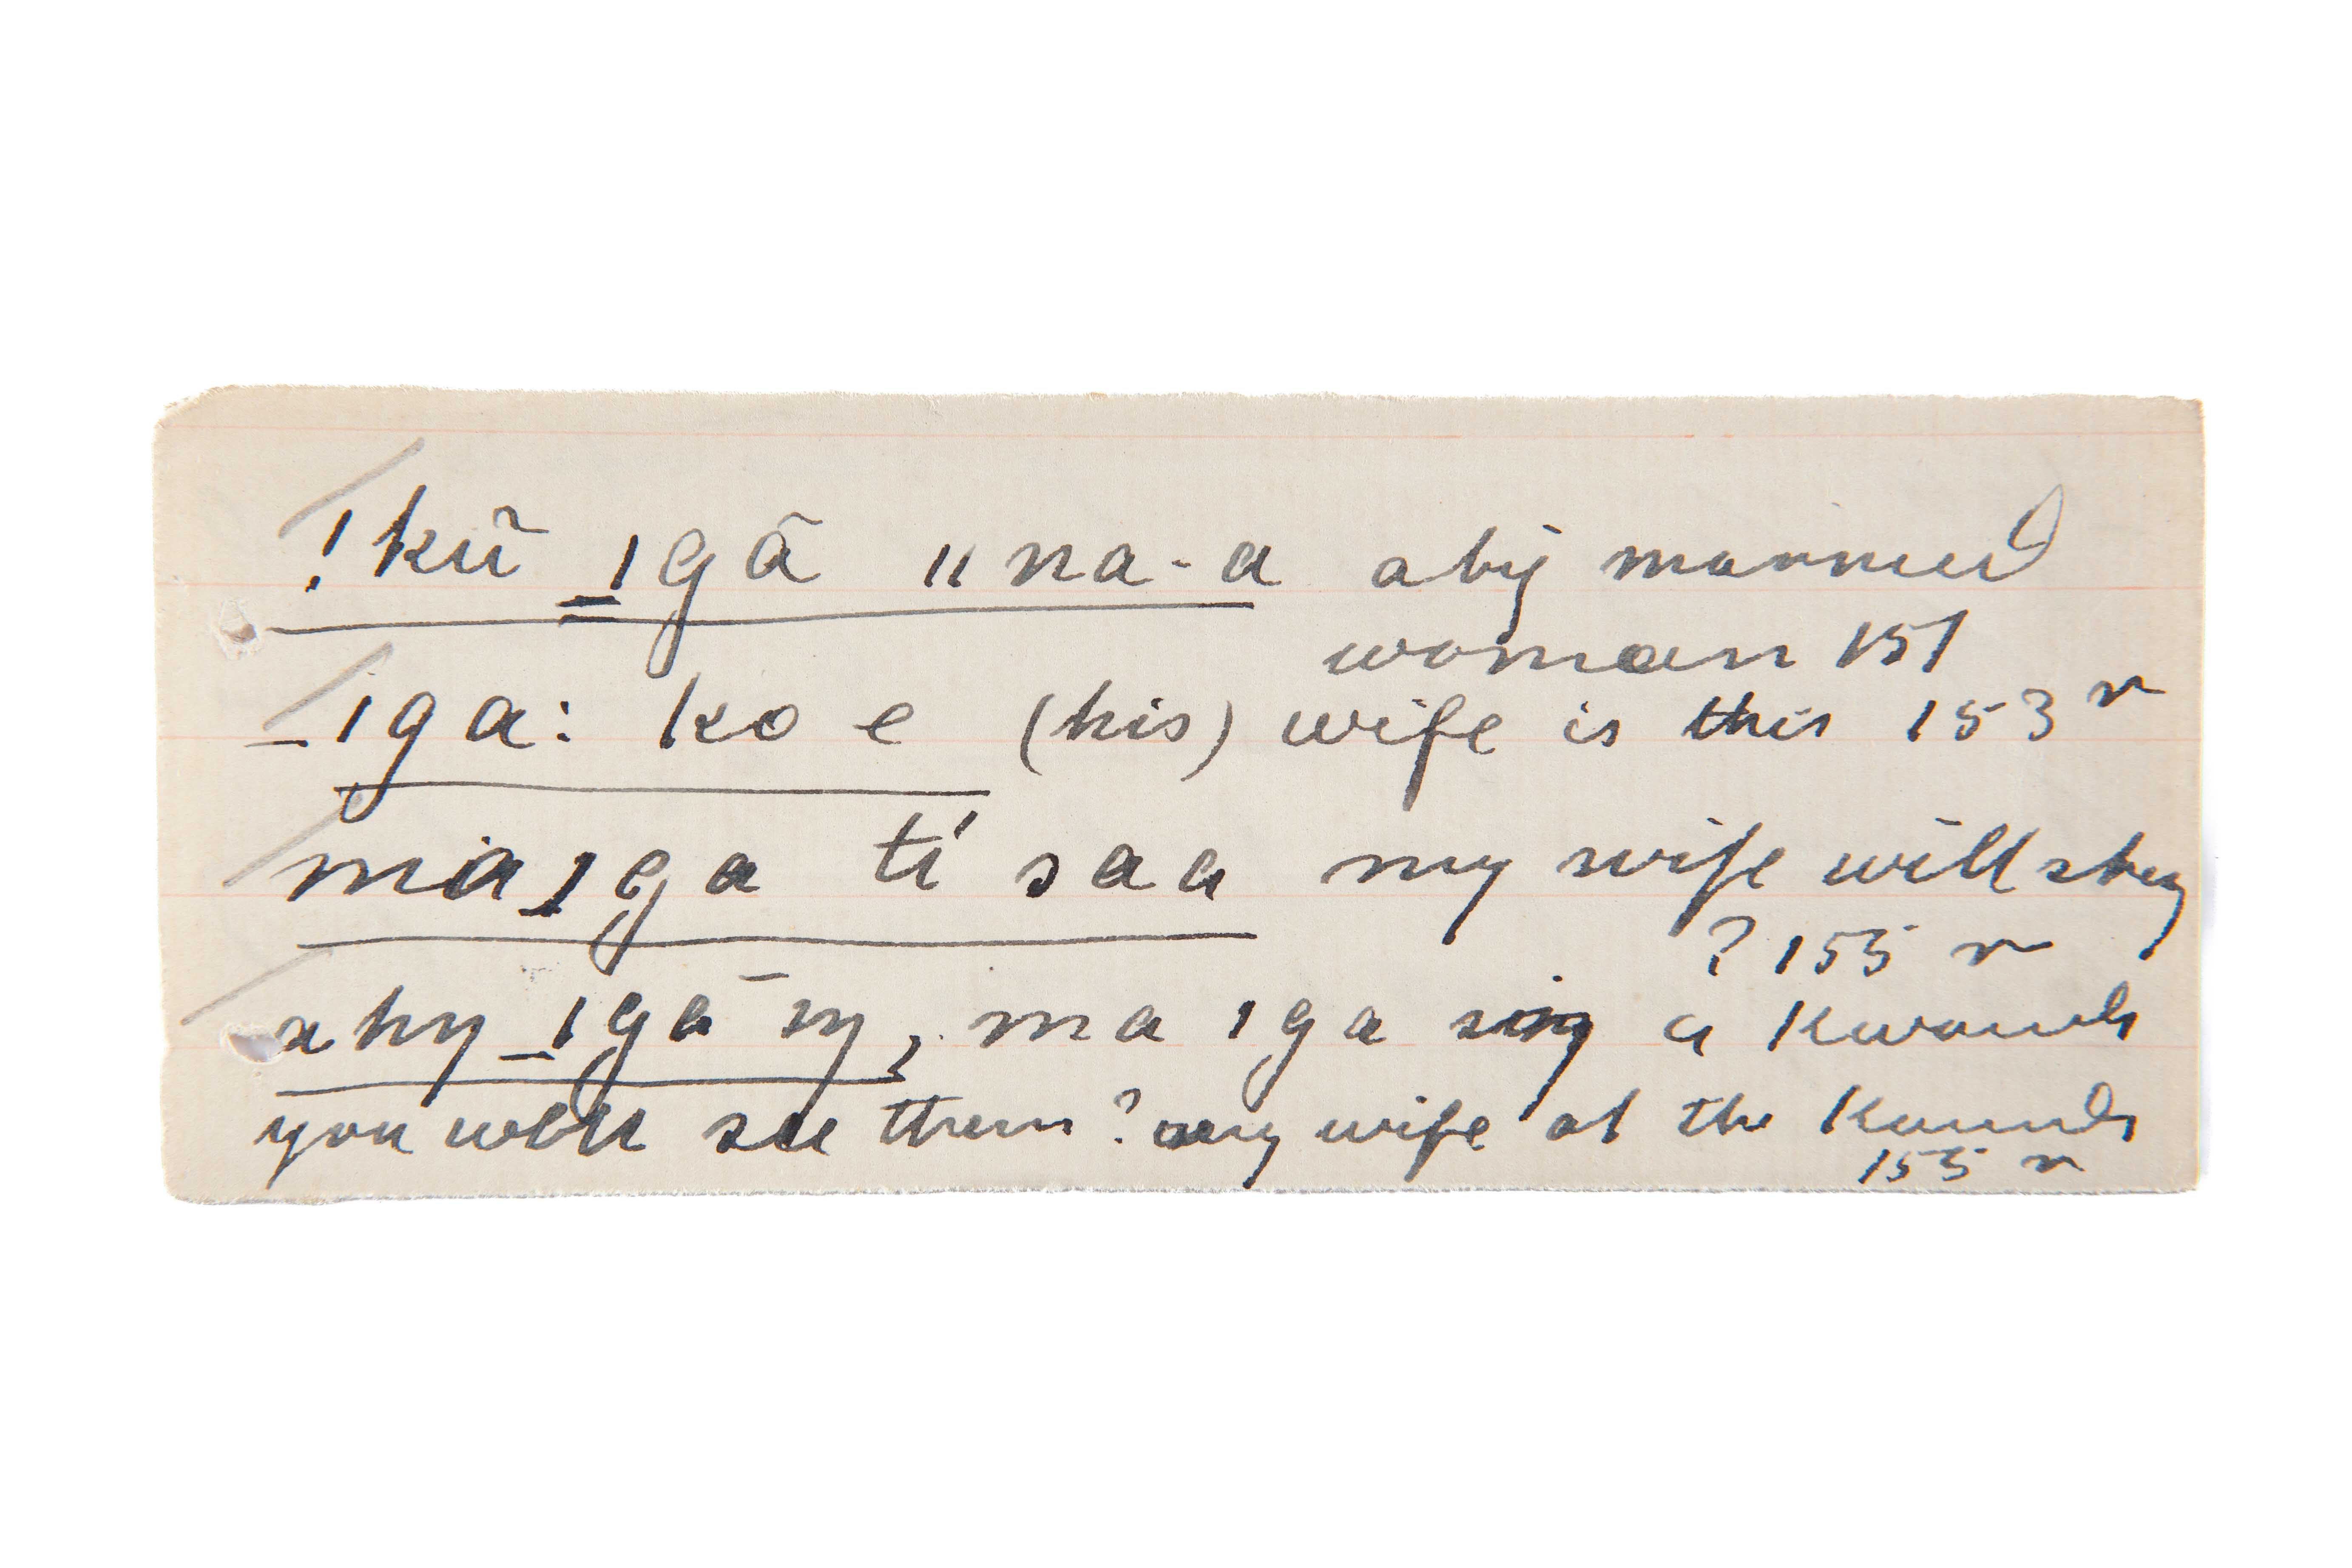 !kũ ǀgā ǁna-a a big married
woman 151
ǀga: ko e (his) wife is this 153 r
ma ǀga ti' saa my wife will stay
? 155 r
a hŋ ǀgā ŋ, ma ǀga siŋ a
you will see them? my wife at the
155 r